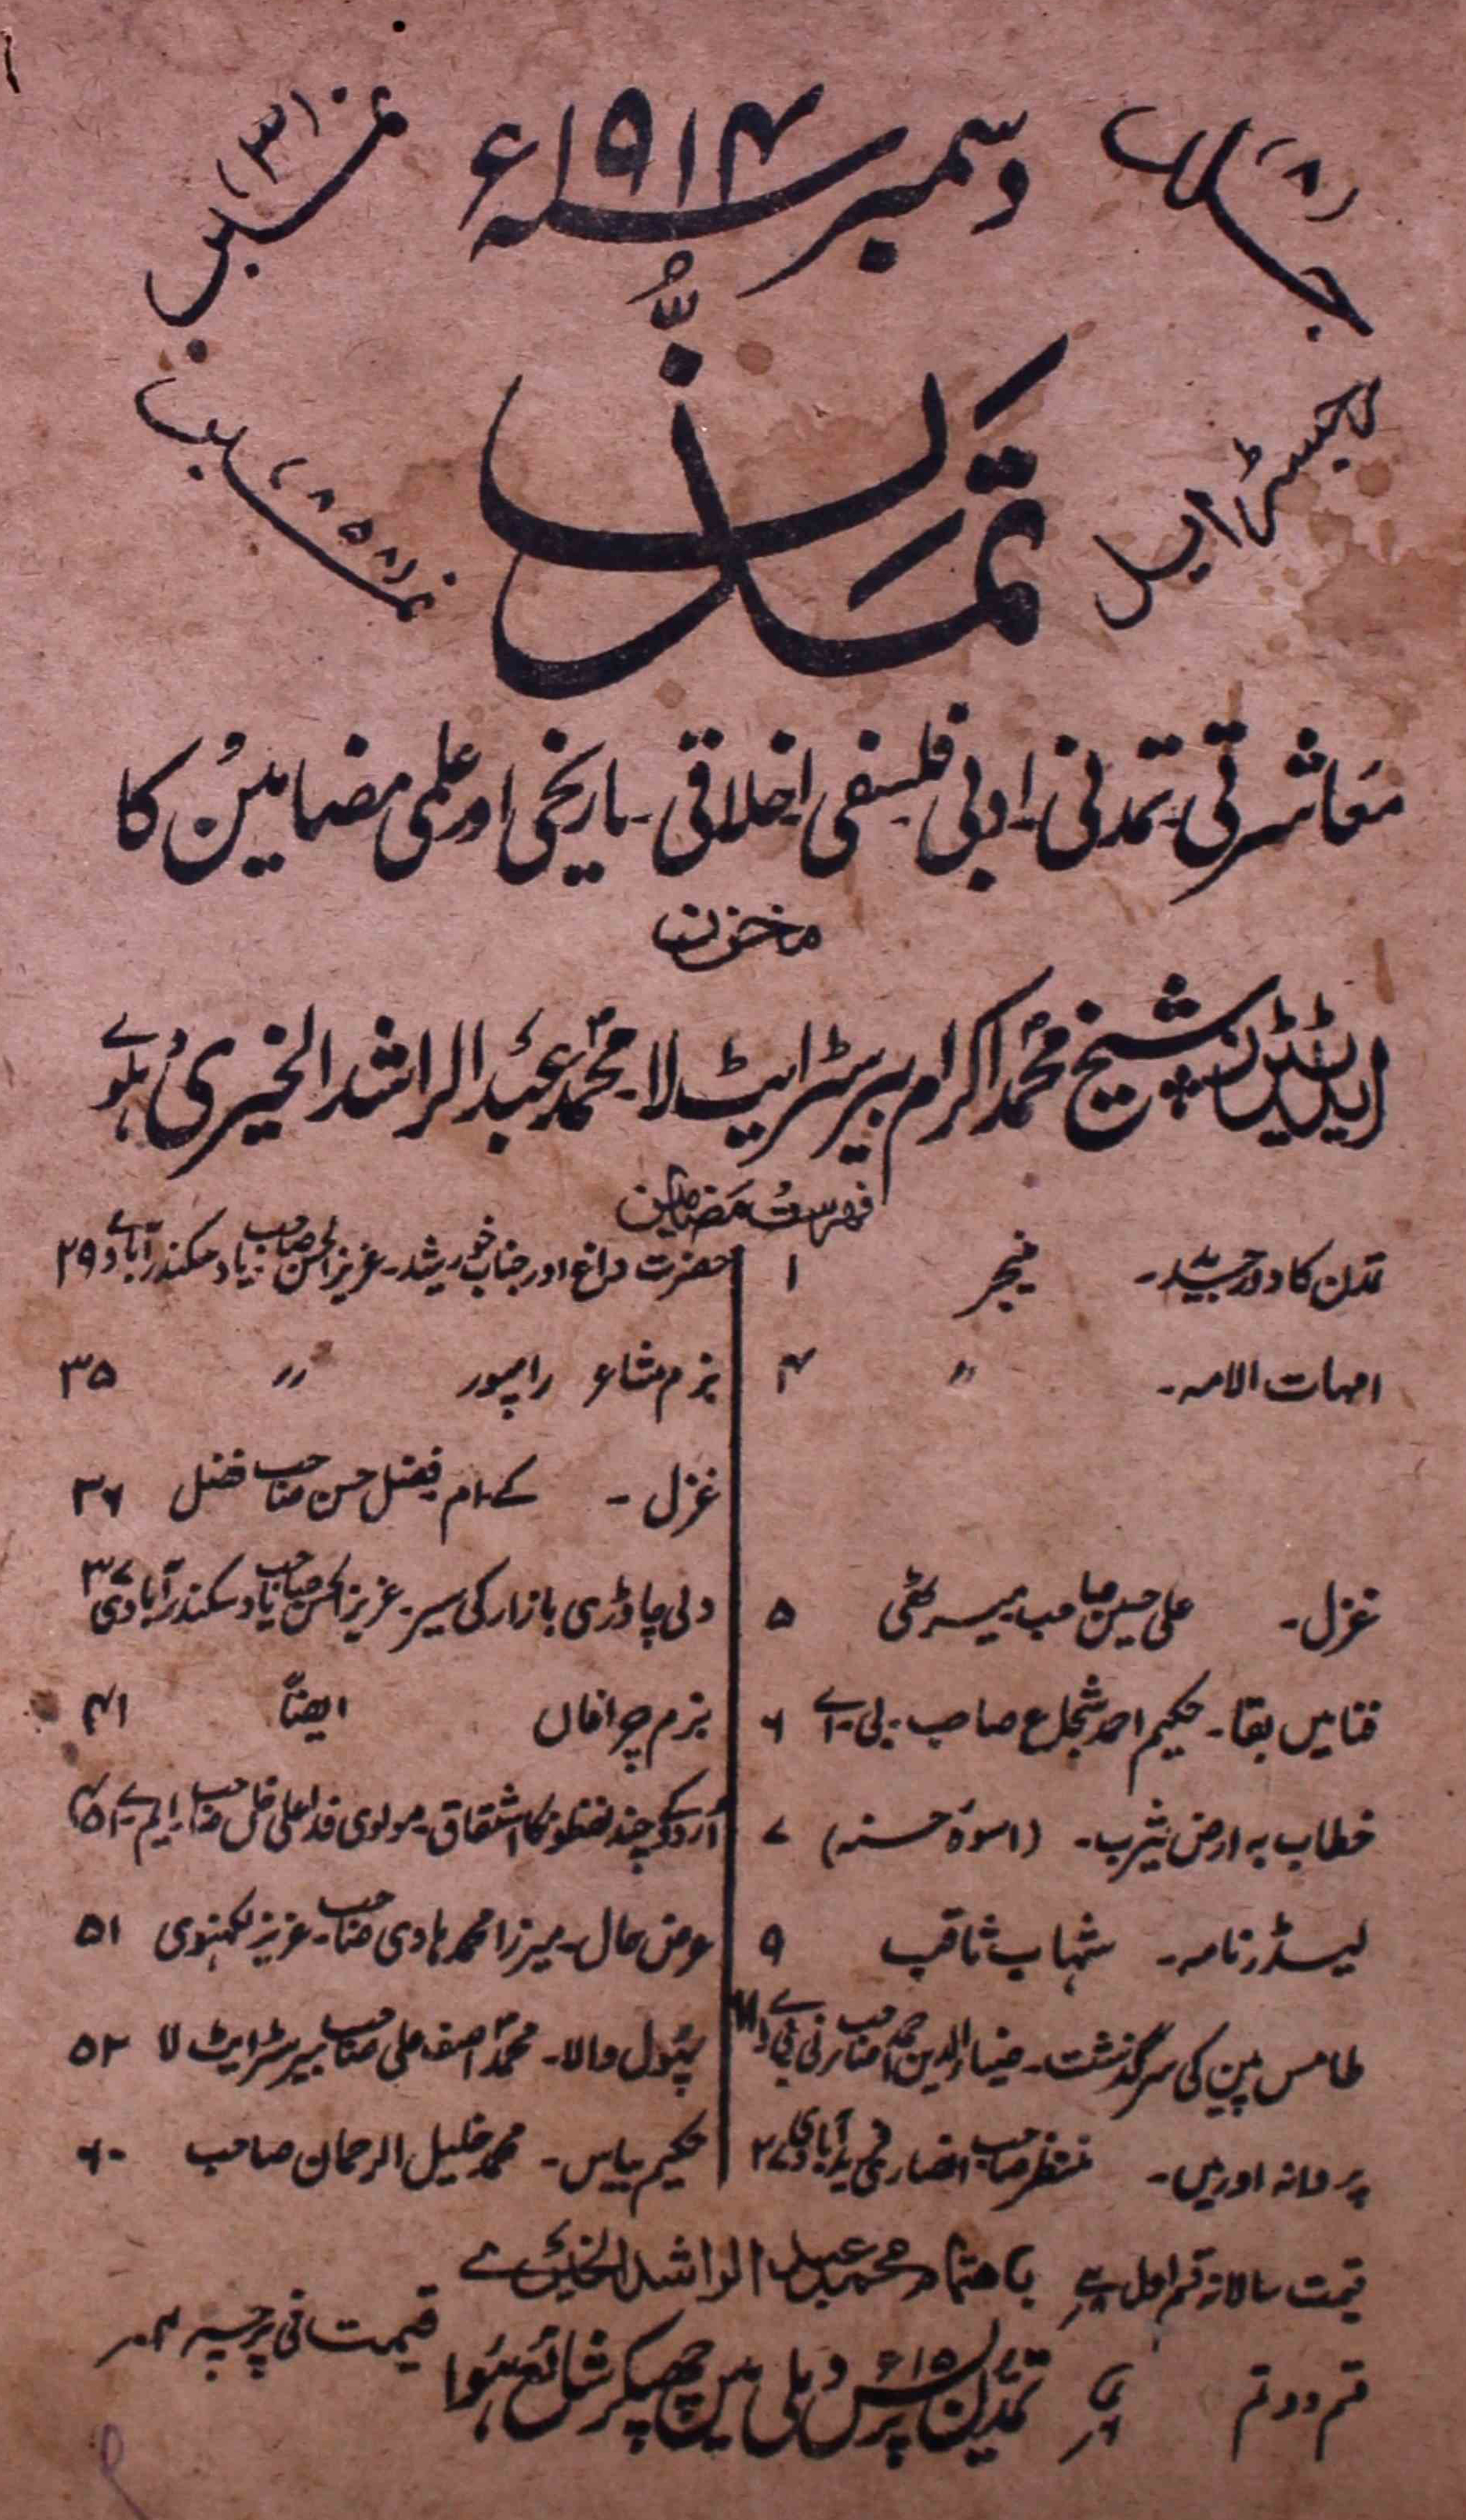 دسمبر سنہ ۱۹۱۴ء
جلد (۸)
نمبر (۳)
رجسٹرڈ ایل
نمبر ۸۵۸
تمدن
معاشرتی۔ تمدنی۔ ادبی فلسفی اخلاقی۔ تاریخی اور علمی مضامین کا
مخزن
ایڈیٹران شیخ محمد اکرام بیرسٹرایٹ لا۔ محمد عبدالراشد الخیری دہلوی
فہرست مضامین
تمدن کا دور جدید۔ منیجر ۱
امہات الامہ۔ 〃 ۴
غزل۔ علی حسین صاحب میرٹھی ۵
فنا میں بقا۔ حکیم احمد شجاع صاحب۔ بی۔ اے ۶
خطاب بہ ارض یثرب۔ (اسوۂ حسنہ) ۷
لیڈرنامہ۔ شہاب ثاقب ۹
طامس پین کی سرگذشت۔ ضیاءالدین احمد صاحب برنی بی اے
پروانہ اور میں۔ منظر صاحب انصاری ۲۷
حضرت داغ اور جناب خورشید۔ عزیزالحسن صاحب زیاد سکندرآبادی ۲۹
بزم مشاعرہ رامپور 〃 ۳۵
غزل۔ کے۔ ام فضل حسن صاحب فضل ۳۶
دلی چاوڑی بازار کی سیر۔ عزیزالحسن صاحب زیاد سکندرآبادی ۳۷
بزم چراغاں ایضاً ۴۱
اردو کے چند لفظوں کا اشتقاق۔ مولوی فداعلی خاں صاحب ایم۔ اے ۴۵
عرض حال۔ میرزا محمد ہادی صاحب۔ عزیز لکھنوی ۵۱
پھول والا۔ محمد آصف علی صاحب بیرسٹرایٹ لا ۵۲
حکیم بیاس۔ محمد خلیل الرحمان صاحب ۶۰
قیمت سالانہ قسم اول
باہتمام محمد عبدالراشد الخیری
قسم دوئم
تمدن پریس دہلی میں چھپکر شائع ہوا
قیمت فی پرچہ ۴؍